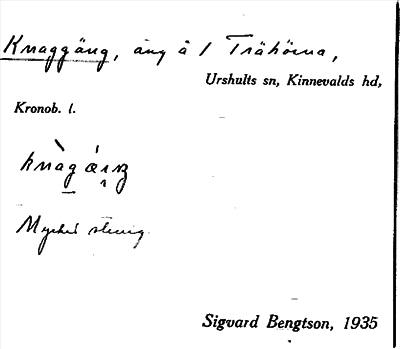 Knaggäng, äng å 1 Trähörna,
Urshults sn, Kinnevalds hd,
Kronob. l.
Mycket stenig.
Sigvard Bengtson, 1935